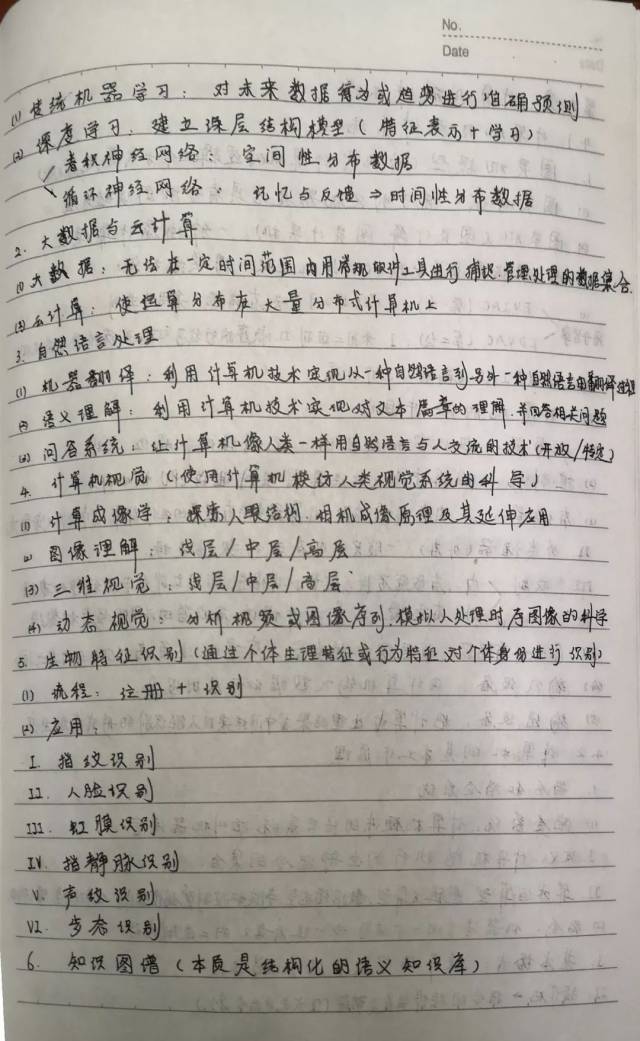 No.
Date
(1) 传统机器学习：对未来数据行为或趋势进行准确预测
(2) 深度学习：建立深层结构模型（特征表示＋学习）
卷积神经网络：空间性分布数据
循环神经网络：记忆与反馈⇒时间性分布数据
2. 大数据与云计算
(1) 大数据：无法在一定时间范围内用常规软件工具进行捕捉.管理处理的数据集合.
(2) 云计算：使运算分布在大量分布式计算机上
3. 自然语言处理
(1) 机器翻译：利用计算机技术实现从一种自然语言到另外一种自然语言的翻译过程
(2) 语义理解：利用计算机技术实现对文本篇章的理解.并回答相关问题
(3) 问答系统：让计算机像人类一样用自然语言与人交流的技术(开放/特定)
4. 计算机视觉（使用计算机模仿人类视觉系统的科学）
(1) 计算成像学：探索人眼结构.相机成像原理及其延伸应用
(2) 图像理解：浅层/中层/高层
(3) 三维视觉：浅层/中层/高层
(4) 动态视觉：分析视频或图像序列.模拟人处理时序图像的科学
5. 生物特征识别（通过个体生理特征或行为特征对个体身份进行识别）
(1) 流程：注册＋识别
(2) 应用：
I. 指纹识别
II. 人脸识别
III. 虹膜识别
IV. 指静脉识别
V. 声纹识别
VI. 步态识别
6. 知识图谱（本质是结构化的语义知识库）